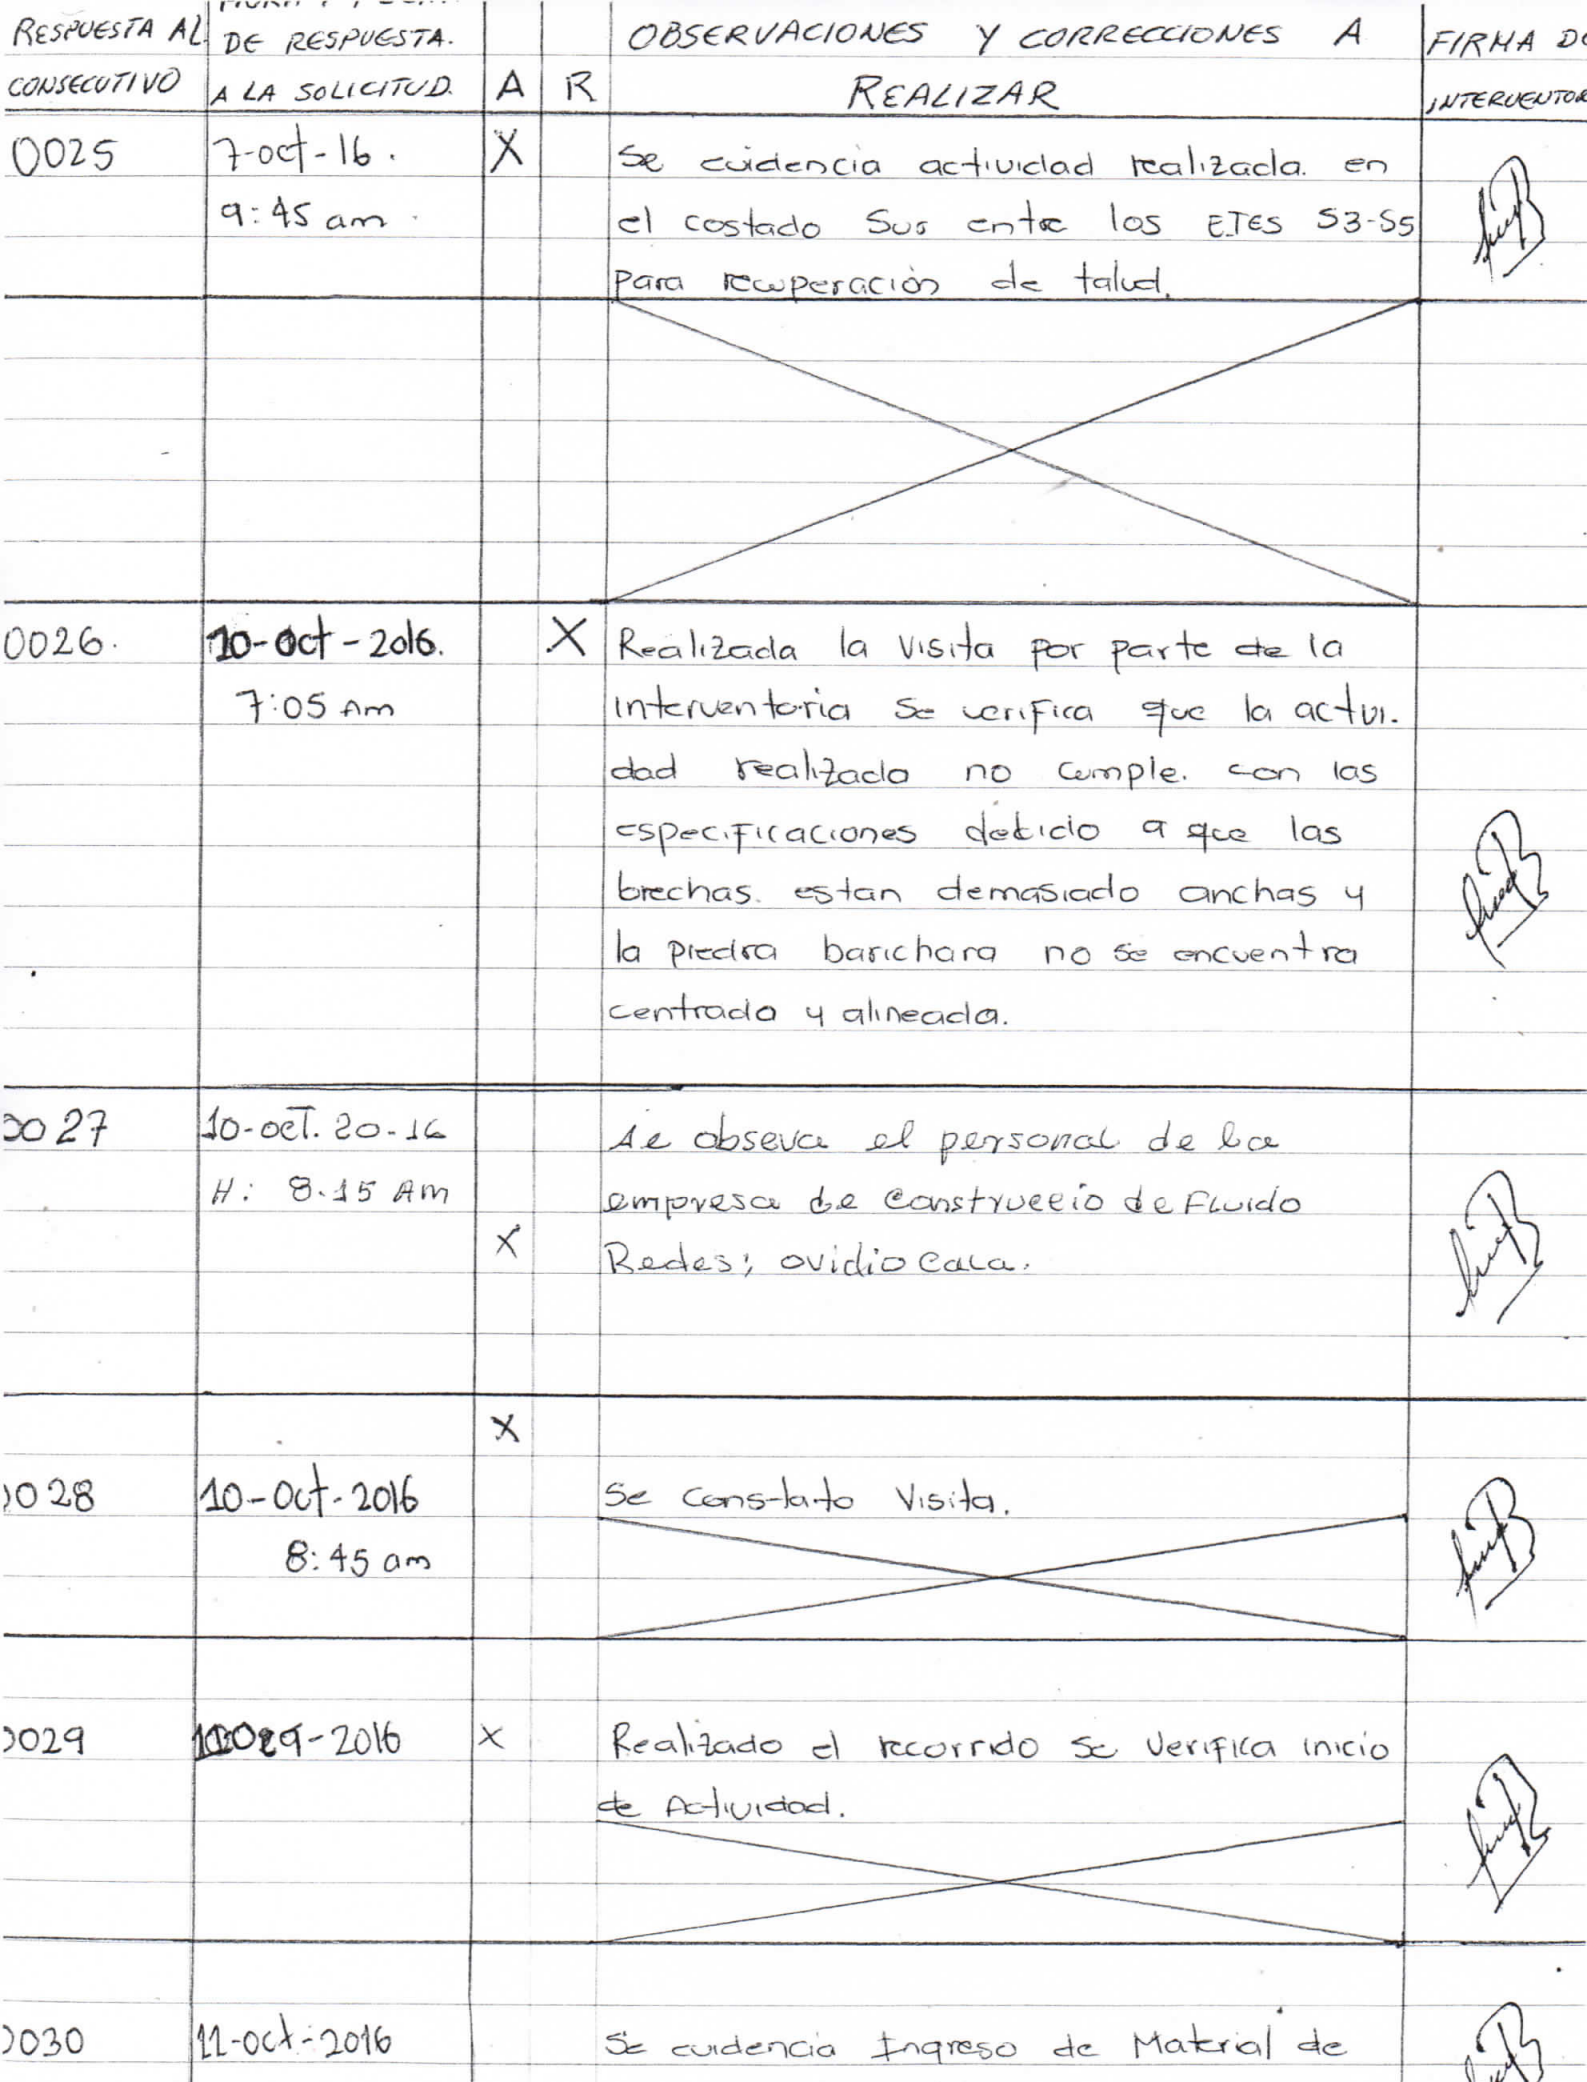 RESPUESTA AL
CONSECUTIVO
DE RESPUESTA.
A LA SOLICITUD.
A
R
OBSERVACIONES Y CORRECCIONES A
REALIZAR
FIRMA DE
INTERVENTOR
0025
7-oct-16.
9:45 am.
X
Se evidencia actividad realizada. en
el costado Sur entre los EJES S3-S5
para recuperación de talud.
0026.
10-oct-2016.
7:05 Am
X
Realizada la Visita por parte de la
interventoria Se verifica que la activi.
dad realizada no cumple. con las
especificaciones debido a que las
brechas. estan demasiado anchas y
la piedra barichara no se encuentra
centrada y alineada.
0027
10-ocT. 20-16
H: 8.15 AM
X
Se obseva el personal de la
empresa de Construccio de Fluido
Redes; ovidio Cala.
X
0028
10-Oct-2016
8:45 am
Se Constato Visita.
0029
-2016
X
Realizado el recorrido Se Verifica inicio
de Actividad.
0030
11-oct-2016
Se evidencia Ingreso de Material de